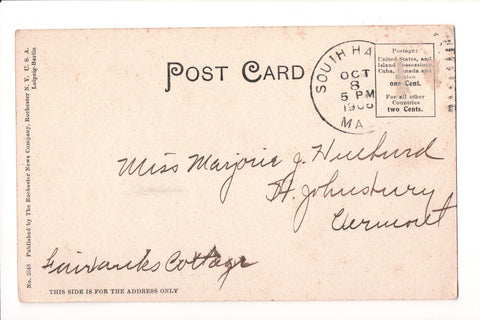 POST CARD
SOUTH HA
OCT
8
5 PM
MA
Postage:
United States, and
Island Possessions
Cuba, Canada and
Mexico
one Cent.
For all other
Countries
two Cents.
Miss Marjorie J. Hulburd
St. Johnsbury
Vermont
Fairbanks Cottage
THIS SIDE IS FOR THE ADDRESS ONLY
Published by The Rochester News Company, Rochester N. Y. U. S. A.
Leipzig-Berlin